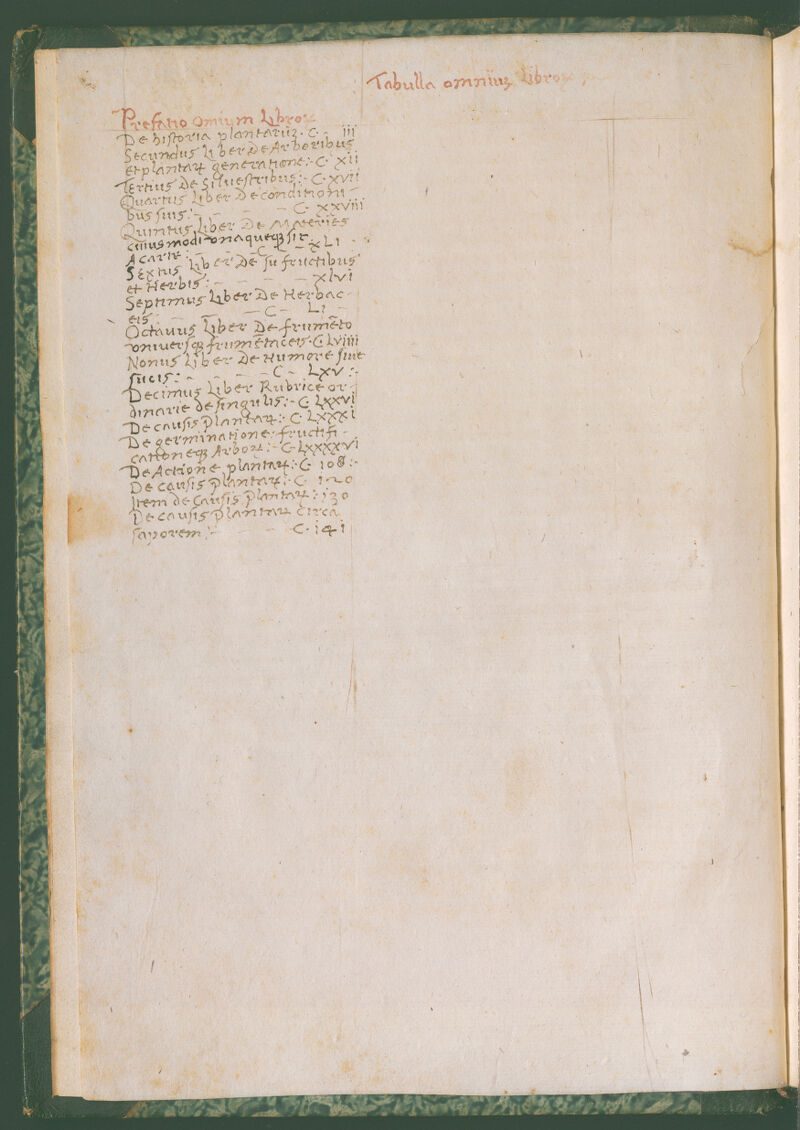 Tabulla omniuz Libroꝝ
Prefatio omium Libroꝝ
De historia plantaruz. C. iii
Secundus Liber De Arboribus
et plantaꝝ generatione :- C. xii
Tertius De Siluestribus :- C. xvii
Quartus Liber De conditioni-
bus suis :- - - - C. xxviii
Quintus Liber De Materies
cuiusmodi onaqueqꝫ sit
Acarie :- - - C - xLi -
Sextus Liber De su fructibus
et Herbis : - - - - xlvi
Septimus Liber De Herbac-
eis : - - - C - Li -
Octauus Liber De frumēto
oniuersqꝫ frumētaceis. C Lviiii
Nonus Liber De Humore siue
sucis :- - - - C - Lxv :-
Decimus Liber Rubrice or
dinarie de singulis :- C Lxxvi
De causis plantaꝝ :- C. Lxxxi
De germinatione fructifi-
cationeqꝫ Arboꝝ :- C Lxxxxvi
De Actione plantaꝝ :- C 108 :-
De causis plantaꝝ :- C 120
Item de Causis plantaꝝ : 130
De causis plantaꝝ circa
saporem :- - - C. 141